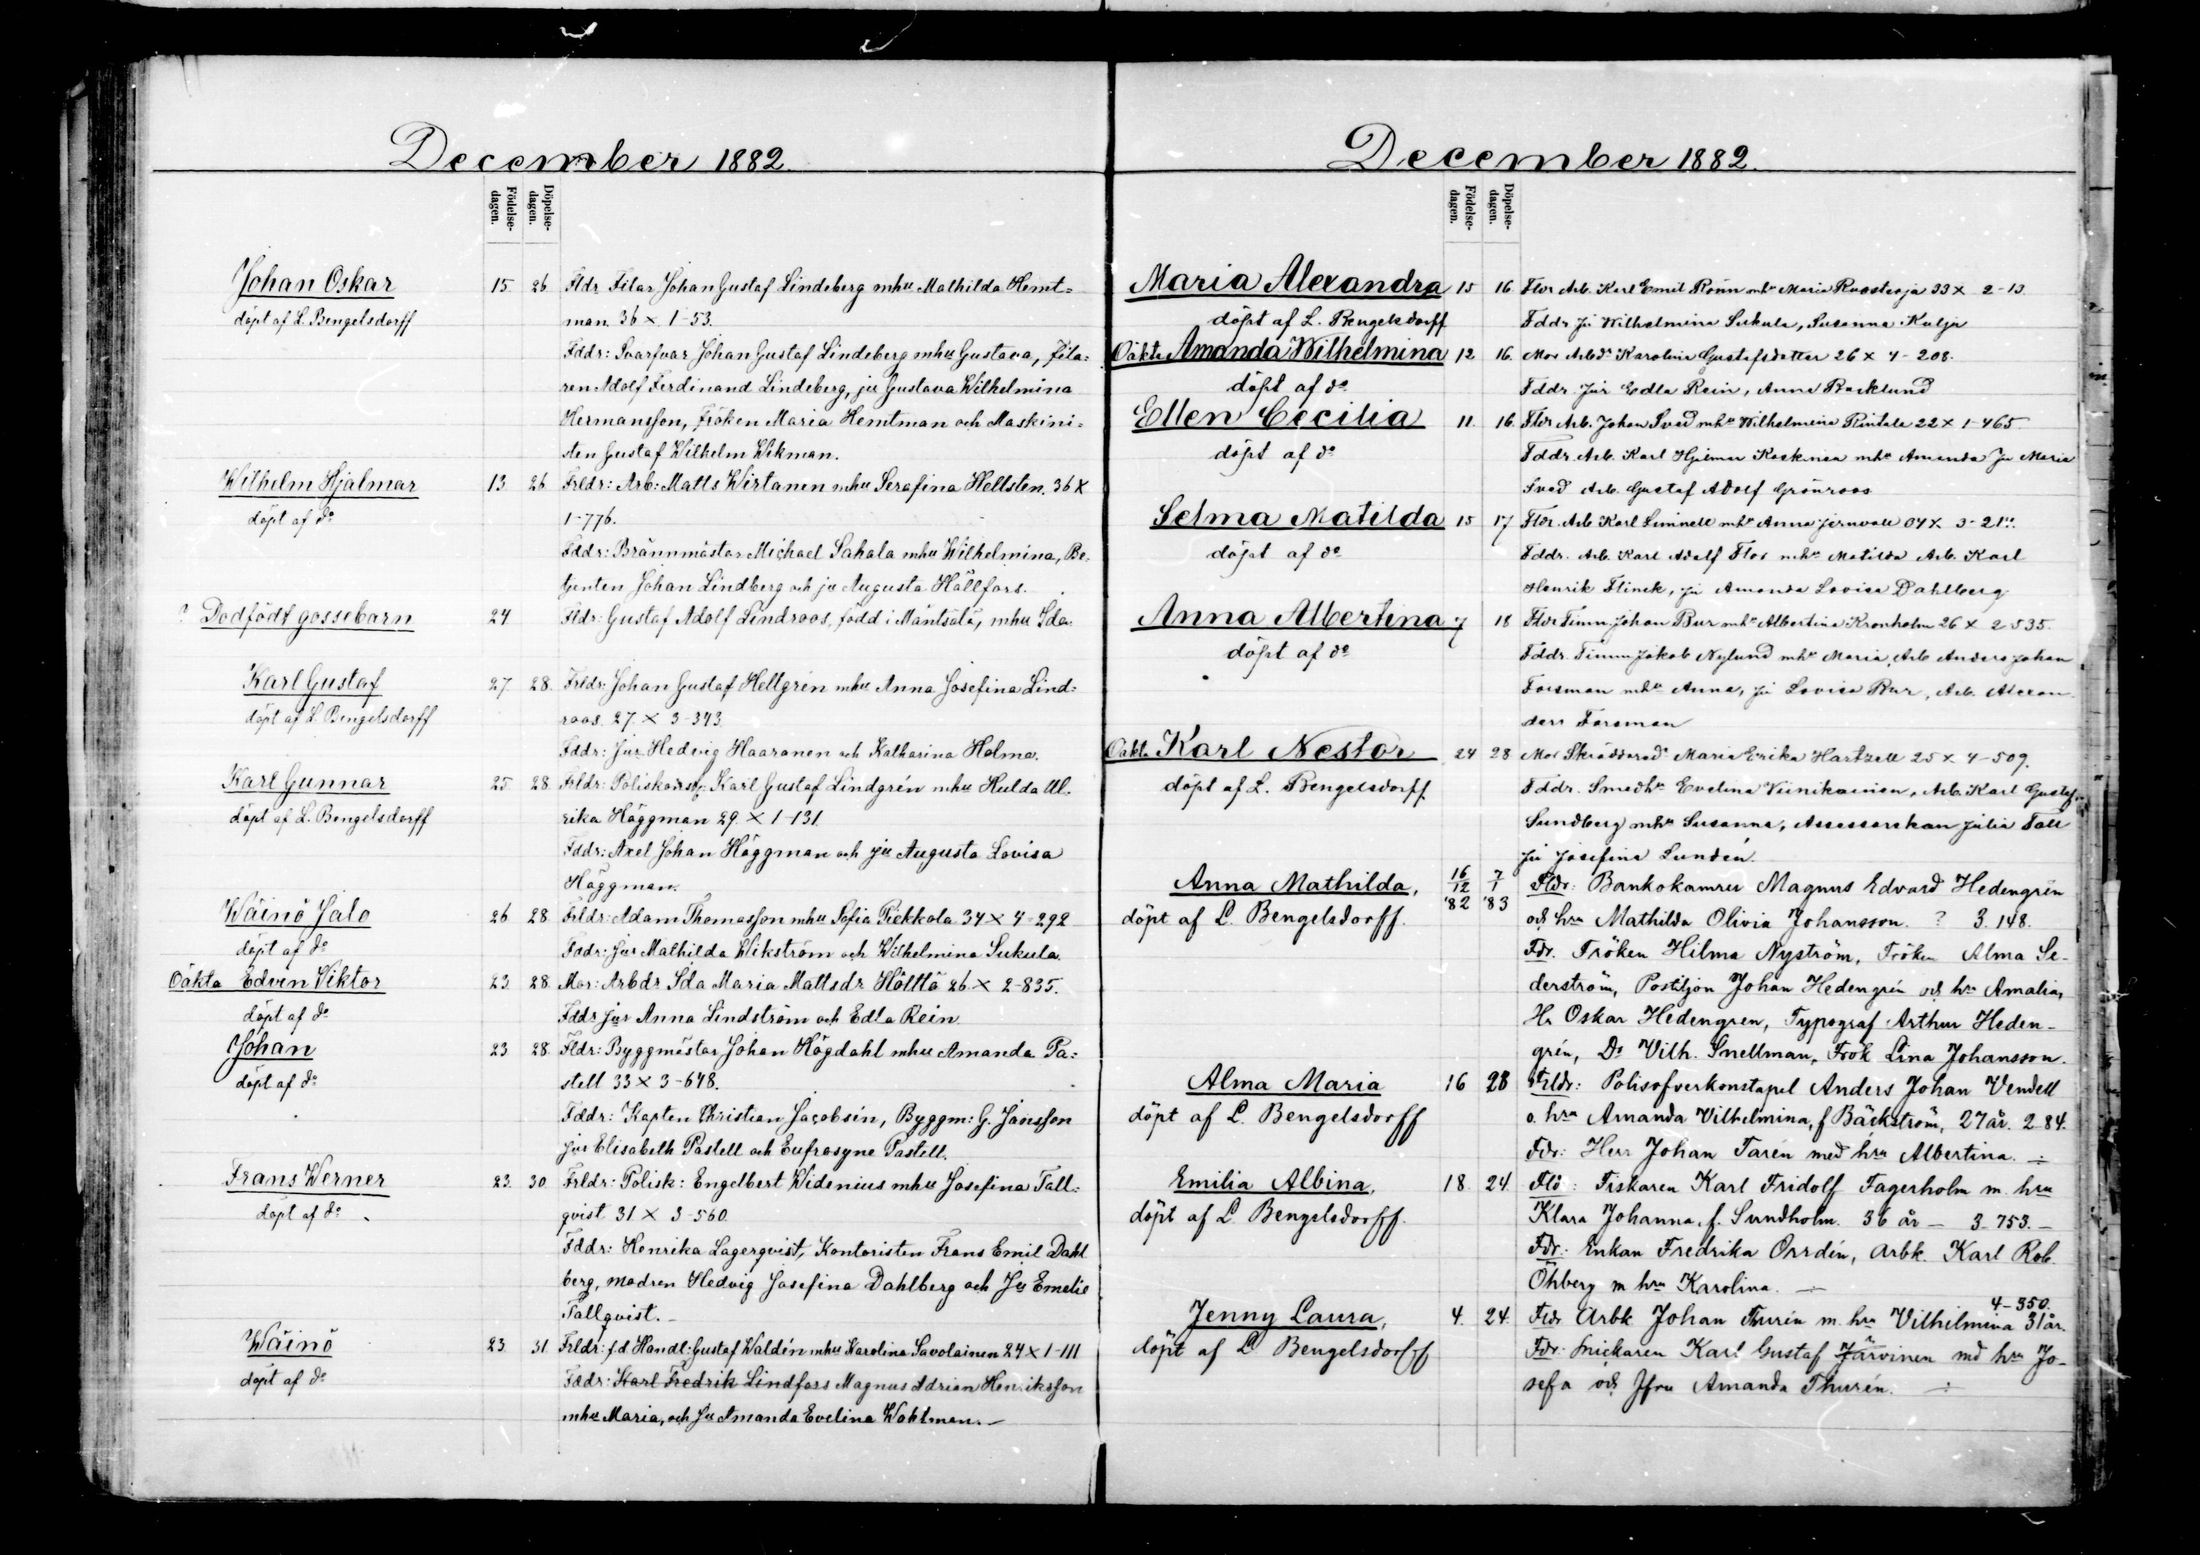 December 1882.
Födelse-
dagen.
Döpelse-
dagen.
Johan Oskar 15 26 Fldr Filar Johan Gustaf Lindeberg mhu Mathilda Hemt=
döpt af L. Bengelsdorff man. 36 × 1-53.
Fddr: Svarfvar Johan Gustaf Lindeberg mhu Gustava, fila=
ren Adolf Ferdinand Lindeberg, ju Gustava Wilhelmina
Hermansson, fröken Maria Hemtman och Maskini=
sten Gustaf Wilhelm Wikman.
Wilhelm Hjalmar 13 26 Frldr: Arb: Matts Wirtanen mhu Serafina Hellsten. 36 ×
döpt af do 1-776.
Fddr: Brännmästar Michael Sahala mhu Wilhelmina, Be=
tjenten Johan Lindberg och ju Augusta Hällfors.
? Dodfödt gossebarn 24 Fldr: Gustaf Adolf Lindroos, född i Mäntsälä, mhu Ida
Karl Gustaf 27. 28. Frldr: Johan Gustaf Hellgrén mhu Anna Josefina Lind=
döpt af L. Bengelsdorff roos. 27. × 3-343.
Fddr: jur Hedvig Haaranen och Katharina Holma.
Karl Gunnar 25 28. Frldr: Poliskonst: Karl Gustaf Lindgrén mhu Hulda Ul.
döpt af L. Bengelsdorff rika Häggman 29. × 1-131.
Fddr: Axel Johan Häggman och ju Augusta Lovisa
Häggman.
Wäinö Jalo 26 28. Frldr: Adam Thomasson mhu Sofia Piekkola 34 × 4-292
döpt af do Fddr: jur Mathilda Wikström och Wilhelmina Sukula.
Oäkta Edvin Viktor 23. 28. Mor: Arbdr Ida Maria Mattsdr Hölttö 26 × 2-835.
döpt af do Fddr jur Anna Lindström och Edla Rein.
Johan 23 28. Fldr: Byggmästar Johan Högdahl mhu Amanda Pa=
döpt af do stell 33 × 3-648.
Fddr: Kapten Christian Jacobsén, Byggm: G. Jansson
jur Elisabeth Pastell och Eufrosyne Pastell.
Frans Werner 23. 30 Frldr: Polisk: Engelbert Widenius mhu Josefina Tall=
döpt af do qvist 31 × 3-560.
Fddr: Henrika Lagerqvist, Kontoristen Frans Emil Dahl
berg, modren Hedvig Josefina Dahlberg och Ju Emelie
Tallqvist.
Wäinö 23. 31. Frldr: f.d Handl: Gustaf Waldén mhu Karolina Savolainen 24 × 1-111
döpt af do Fddr: Karl Fredrik Lindfors Magnus Adrian Henriksson
mhu Maria, och Ju Amanda Evelina Wahlman.
December 1882.
Födelse-
dagen.
Döpelse-
dagen.
Maria Alexandra 15 16 Fldr Arb. Karl Emil Rönn mhu Maria 33 × 2-13.
döpt af L. Bengelsdorff Fddr Ju Wilhelmina Sukula, Susanna Kulja
Oäkta Amanda Wilhelmina 12 16. Mor Karolina Gustafsdotter 26 × 4-208.
döpt af do Fddr Jur Edla Rein, Anna Backlund
Ellen Cecilia 11. 16. Fldr Arb. Johan Sved mhu Wilhelmina Rintala 22 × 1-465.
döpt af do Fddr. Arb. Karl Hjelmar Koskinen mhu Amanda Ju Maria
Sved Arb. Gustaf Adolf Grönroos
Selma Matilda 15 17 Fldr. Arb Karl Limnell mhu Anna Jernvall
döpt af do Fddr. Arb. Karl Adolf Flor mhu Matilda Arb. Karl
Henrik Flinck, ju Amanda Lovisa Dahlberg.
Anna Albertina 7 18 Fldr Timm. Johan Bur mhu Albertina Kronholm 26 × 2-535.
döpt af do Fddr. Timm Jakob Nylund mhu Maria, Arb Anders Johan
Forsman mhu Anna, ju Lovisa Bur, Arb. Alexan
ders Forsman
Oäkta Karl Nestor 24 28 Mor Maria Erika Hartzell 25 × 4-509.
döpt af L. Bengelsdorff. Fddr. Evelina Viinikainen, Arb. Karl Gustaf
Sundberg mhu Susanna, Assessorskan Julia Fall
ju Josefina Lundén.
Anna Mathilda, 16/12 '82 7/1 '83 Fldr: Bankokamrer Magnus Edvard Hedengrén
döpt af L. Bengelsdorff. och hru Mathilda Olivia Johansson. ? 3. 148.
Fdr. Fröken Hilma Nyström, Fröken Alma Se-
derström, Postiljon Johan Hedengrén och hru Amalia,
Hr Oskar Hedengren, Typograf Arthur Heden-
grén, Dr Vilh. Snellman, Frök Lina Johansson.
Alma Maria 16 28 Frldr: Polisofverkonstapel Anders Johan Vendell
döpt af L. Bengelsdorff o. hru Amanda Vilhelmina, f Bäckström, 27 år. 2-84.
Fdr: Herr Johan Tarén med hru Albertina. ÷
Emilia Albina, 18. 24. Fldr: Fiskaren Karl Fridolf Fagerholm m. hru
döpt af L. Bengelsdorff. Klara Johanna, f. Sundholm. 36 år — 3-753. —
Fdr: Enkan Fredrika Orrdén, Arbk. Karl Rob.
Öhberg m hru Karolina. ÷
4-350.
Jenny Laura, 4. 24. Fldr Arbk Johan Thurén m. hru Vilhelmina 31 år.
döpt af L Bengelsdorff Fdr: Snickaren Karl Gustaf Järvinen md hru Jo-
sefa och Jfru Amanda Thurén. ÷